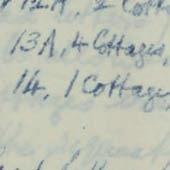 12A, 2 Cott
13A, 4 Cottages,
14, 1 Cottage,